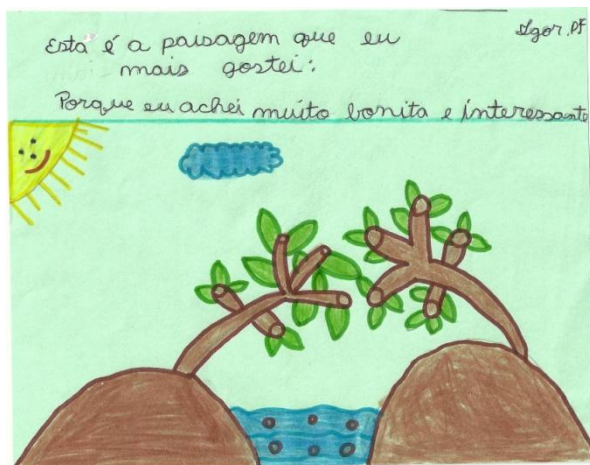 Igor.Pf
Esta é a paisagem que eu
mais gostei:
Porque eu achei muito bonita e interessante